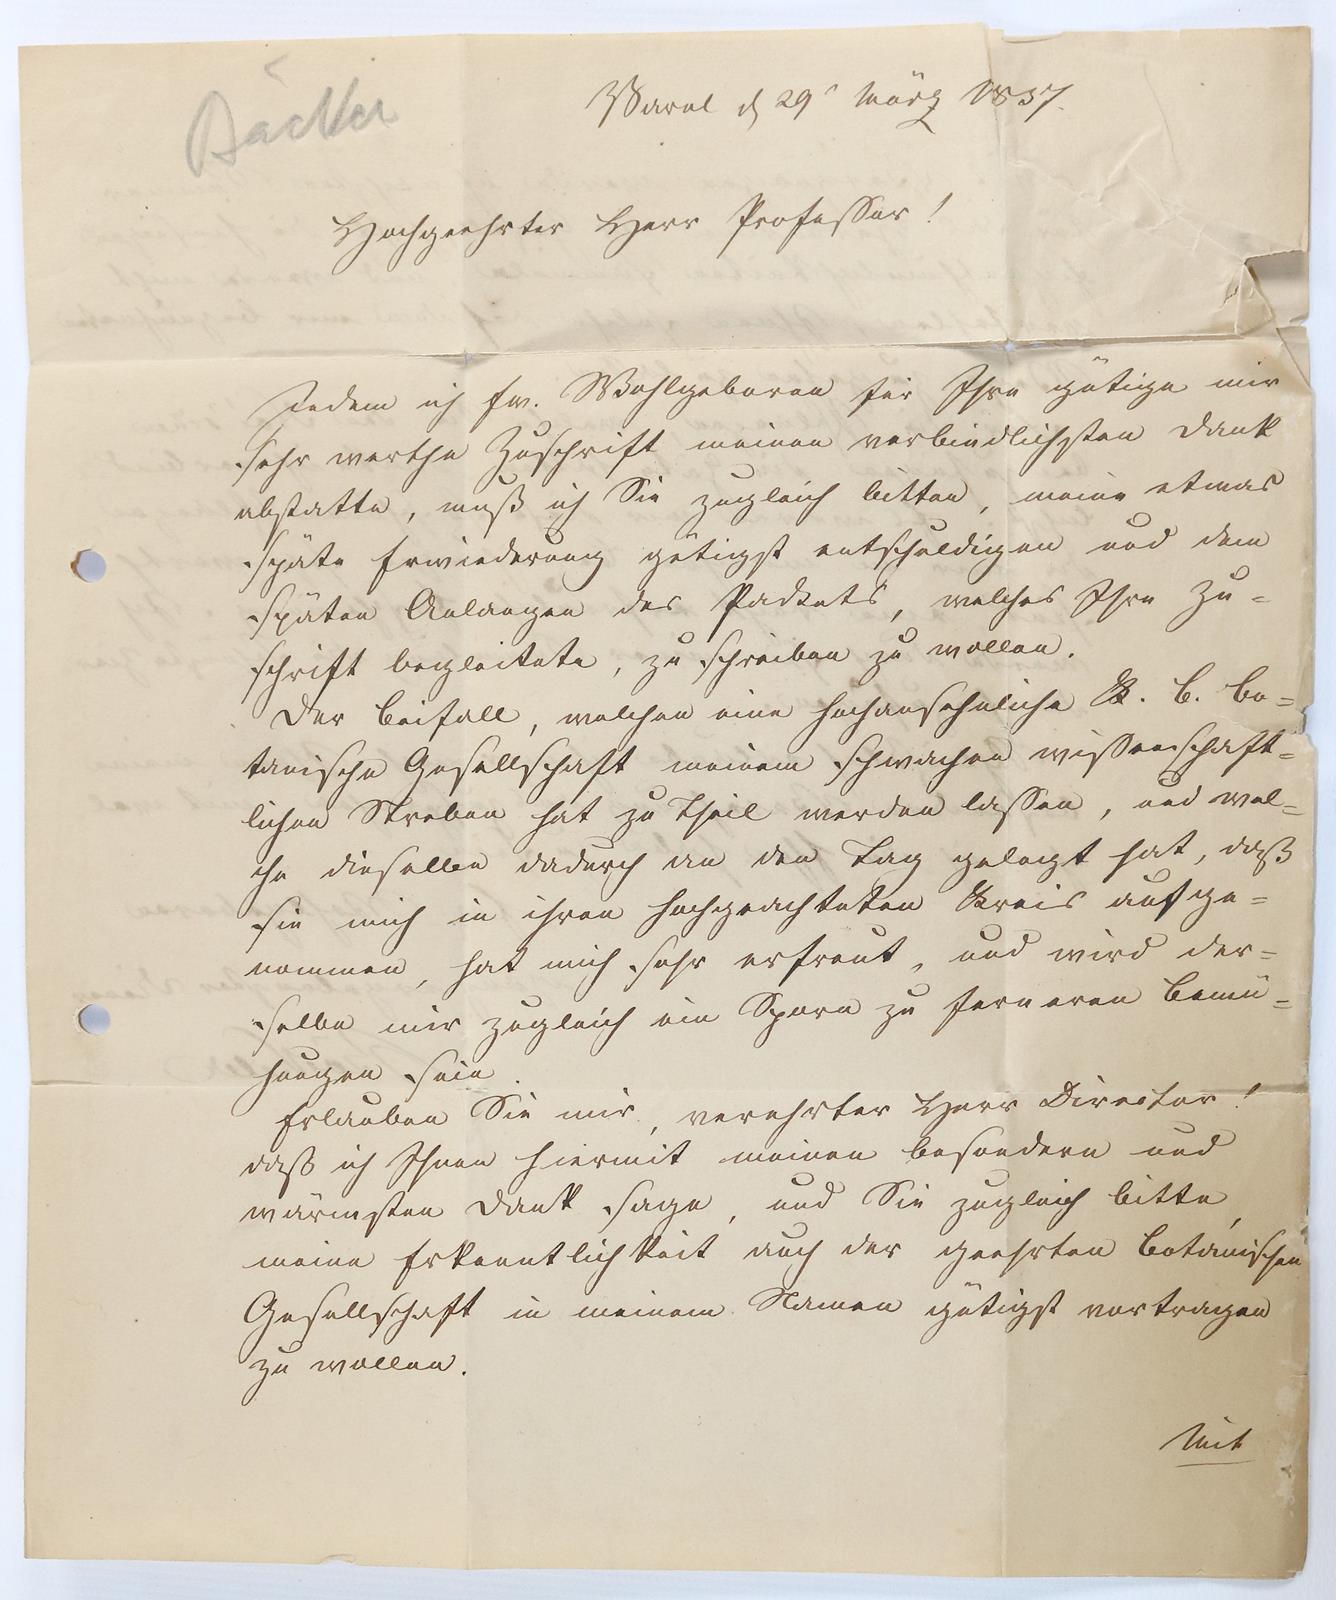 Bäcker
Varel d 29t März 1837.
Hochgeehrter Herr Professor!
Indem ich Ew. Wohlgeboren für Ihre gütige mir
sehr werthe Zuschrift meinen verbindlichsten Dank
abstatte, muß ich Sie zugleich bitten, meine etwas
späte Erwiederung gütigst entschuldigen und dem
späten Anlangen des Packets, welches Ihre Zu-
schrift begleitete, zu schreiben zu wollen.
Der Beifall, welchen eine hochansehnliche K. b. bo-
tanische Gesellschaft meinem schwachen wissenschaft-
lichen Streben hat zu Theil werden lassen, und wel-
che dieselbe dadurch an den Tag gelegt hat, daß
sie mich in ihren hochgeachteten Kreis aufge-
nommen, hat mich sehr erfreut, und wird der-
selbe mir zugleich ein Sporn zu ferneren Bemü-
hungen sein.
Erlauben Sie mir, verehrter Herr Director!
daß ich Ihnen hiermit meinen besondern und
wärmsten Dank sage, und Sie zugleich bitte,
meine Erkenntlichkeit auch der geehrten botanischen
Gesellschaft in meinem Namen gütigst vortragen
zu wollen.
Mit